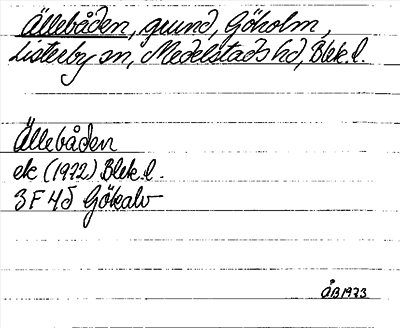 Ällebåden, grund, Göholm,
Listerby sn, Medelstads hd, Blek.l.
Ällebåden
ek (1972) Blek.l.
3F 4d Gökalv
ÅB1973